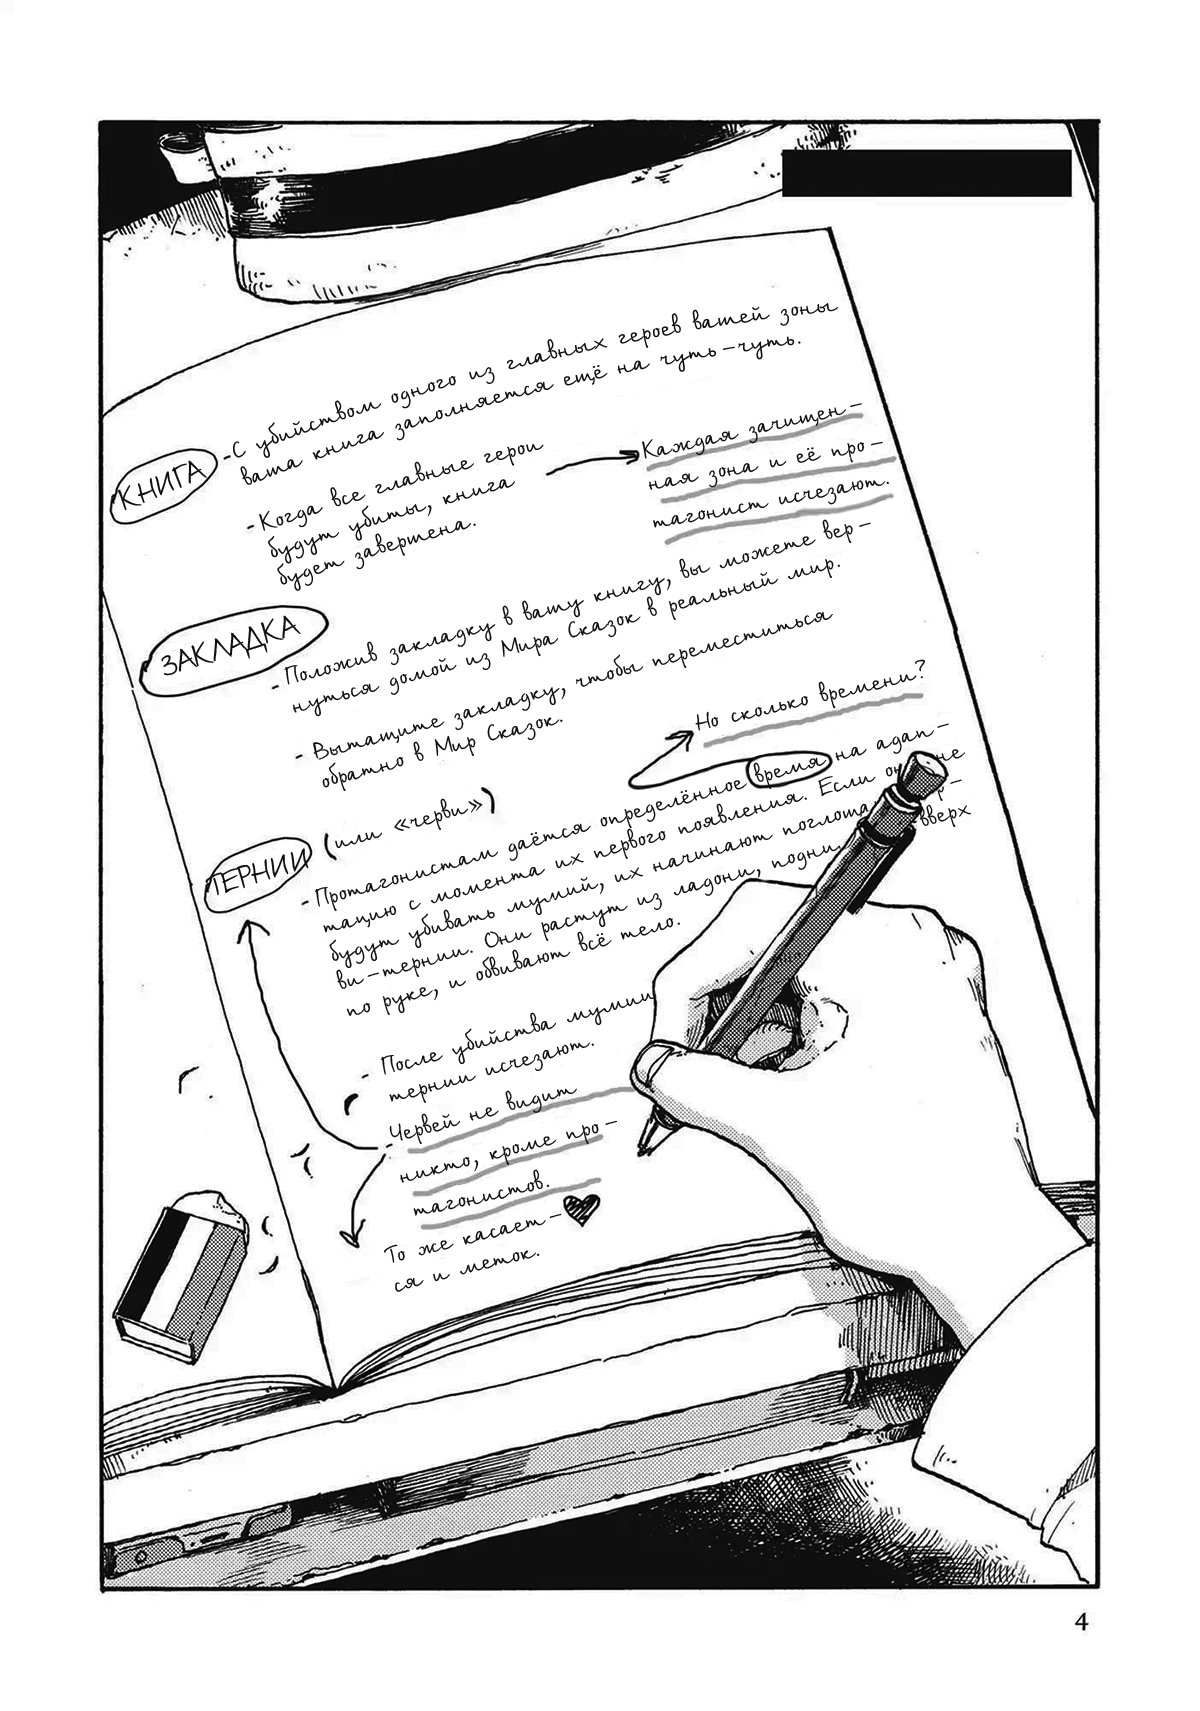 КНИГА
-С убийством одного из главных героев вашей зоны
ваша книга заполняется ещё на чуть-чуть.
-Когда все главные герои
будут убиты, книга
будет завершена.
Каждая зачищен-
ная зона и её про-
тагонист исчезают.
ЗАКЛАДКА
-Положив закладку в вашу книгу, вы можете вер-
нуться домой из Мира Сказок в реальный мир.
- Вытащите закладку, чтобы переместиться
обратно в Мир Сказок.
Но сколько времени?
ТЕРНИИ
(или «черви»)
-Протагонистам даётся определённое время на адап-
тацию с момента их первого появления. Если не
будут убивать мумий, их начинают
ви-тернии. Они растут из ладони, вверх
по руке, и обвивают всё тело.
- После убийства мумии
тернии исчезают.
- Червей не видит
никто, кроме про-
тагонистов.
То же касает-
ся и меток.
4